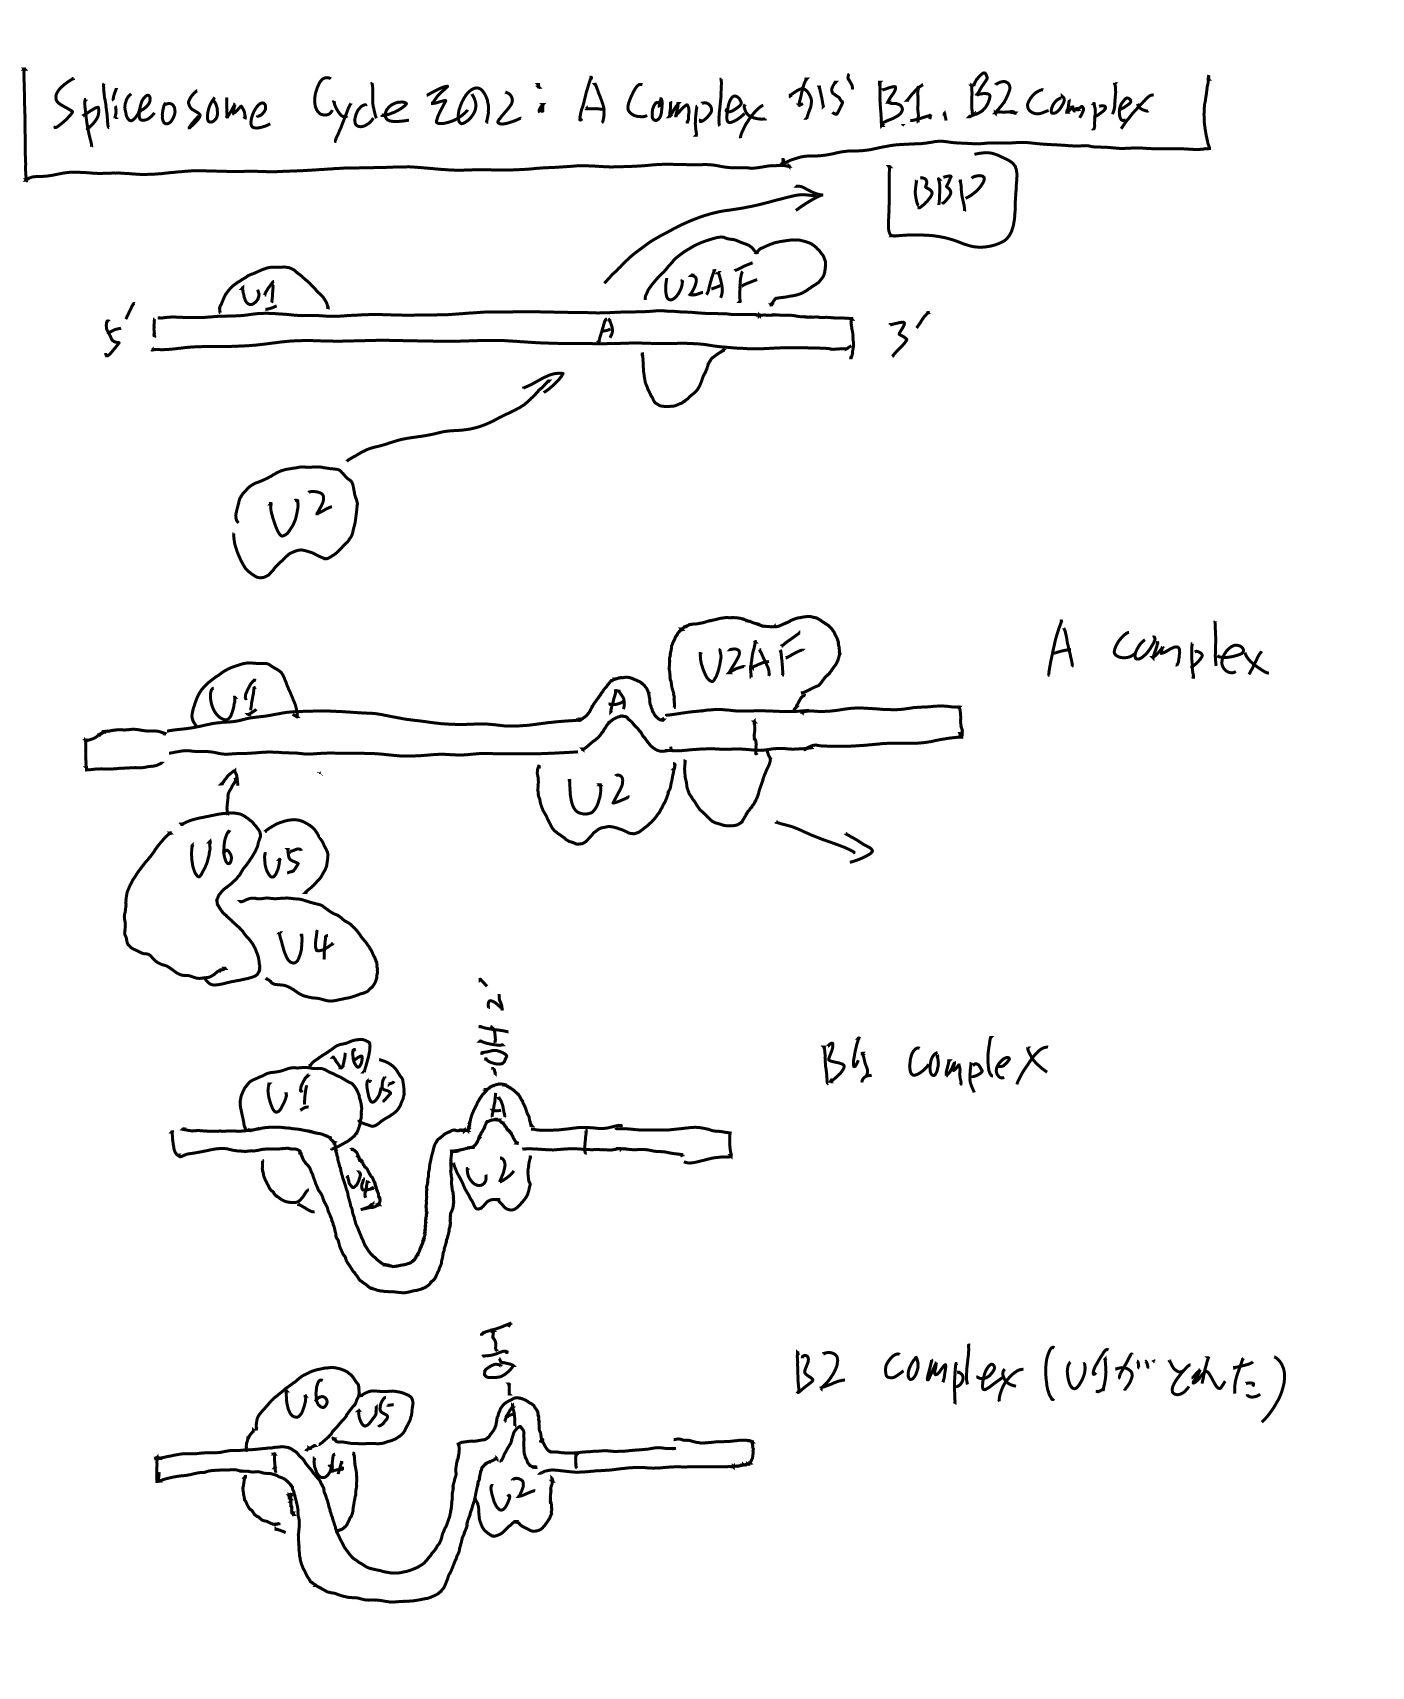 Spliceosome Cycle その2: A Complex から B1. B2 complex
BBP
U1
U2AF
5'
A
3'
U2
A complex
U2AF
U1
A
U2
U6
U5
U4
OH 2'
B1 complex
U6
U1
U5
A
U4
U2
OH
B2 complex (U1がとれた)
U6
U5
A
U4
U2